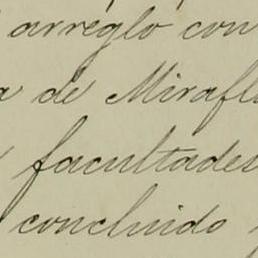 arreglo con
a de Mirafl
facultades
concluido